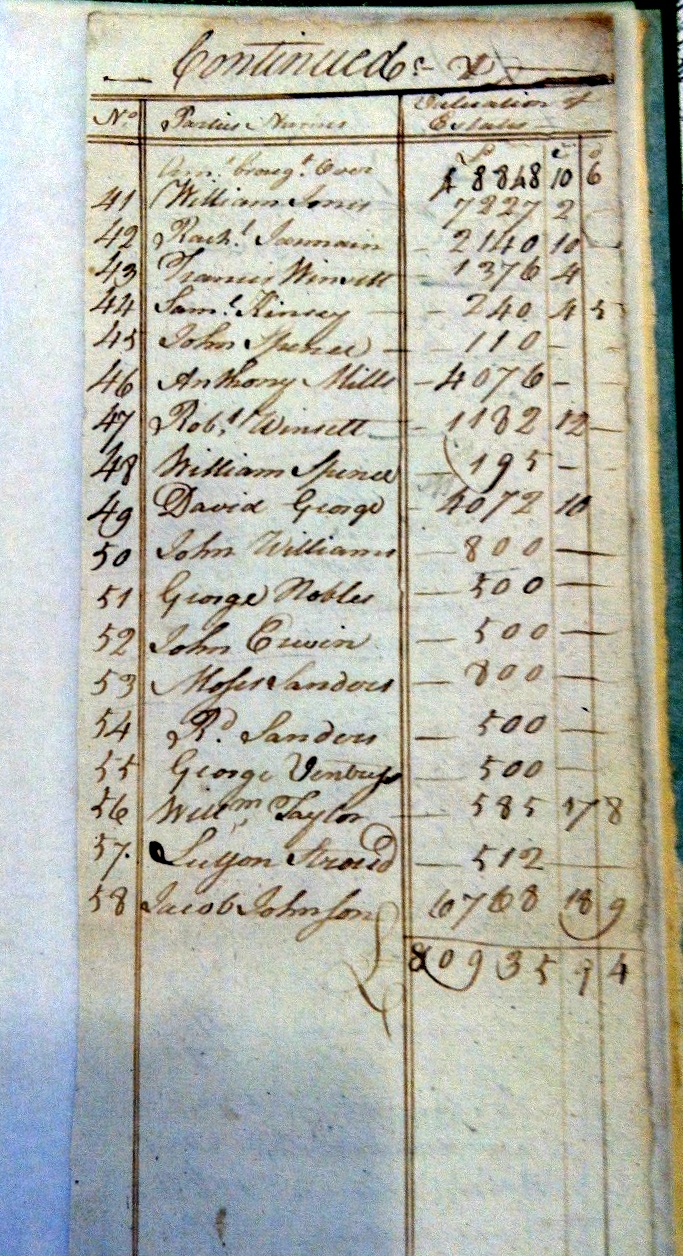 Continued &c
No Parties Names Valuation of Estates
£ s d
Amt. brougt. Over 48848 10 6
41 William Jones 7227 2 -
42 Rachl. Jarmain - 2140 10 -
43 Francis Winsett - 1376 4
44 Saml. Kinsey - 240 4 5
45 John Spence - 110 - -
46 Anthony Mills - 4076 - -
47 Robt. Winsett - 1182 12 -
48 William Spence - 195 - -
49 David George - 4072 10
50 John Williams - 800 -
51 George Nobles - 500 -
52 John Erwin - 500 -
53 Moses Sanders - 800 -
54 Rd. Sanders - 500 -
55 George Ventress - 500 -
56 Willm. Taylor - 585 17 8
57. Lutson Stroud - 512 -
58 Jacob Johnson 6768 18 9
£ 80935 9 4